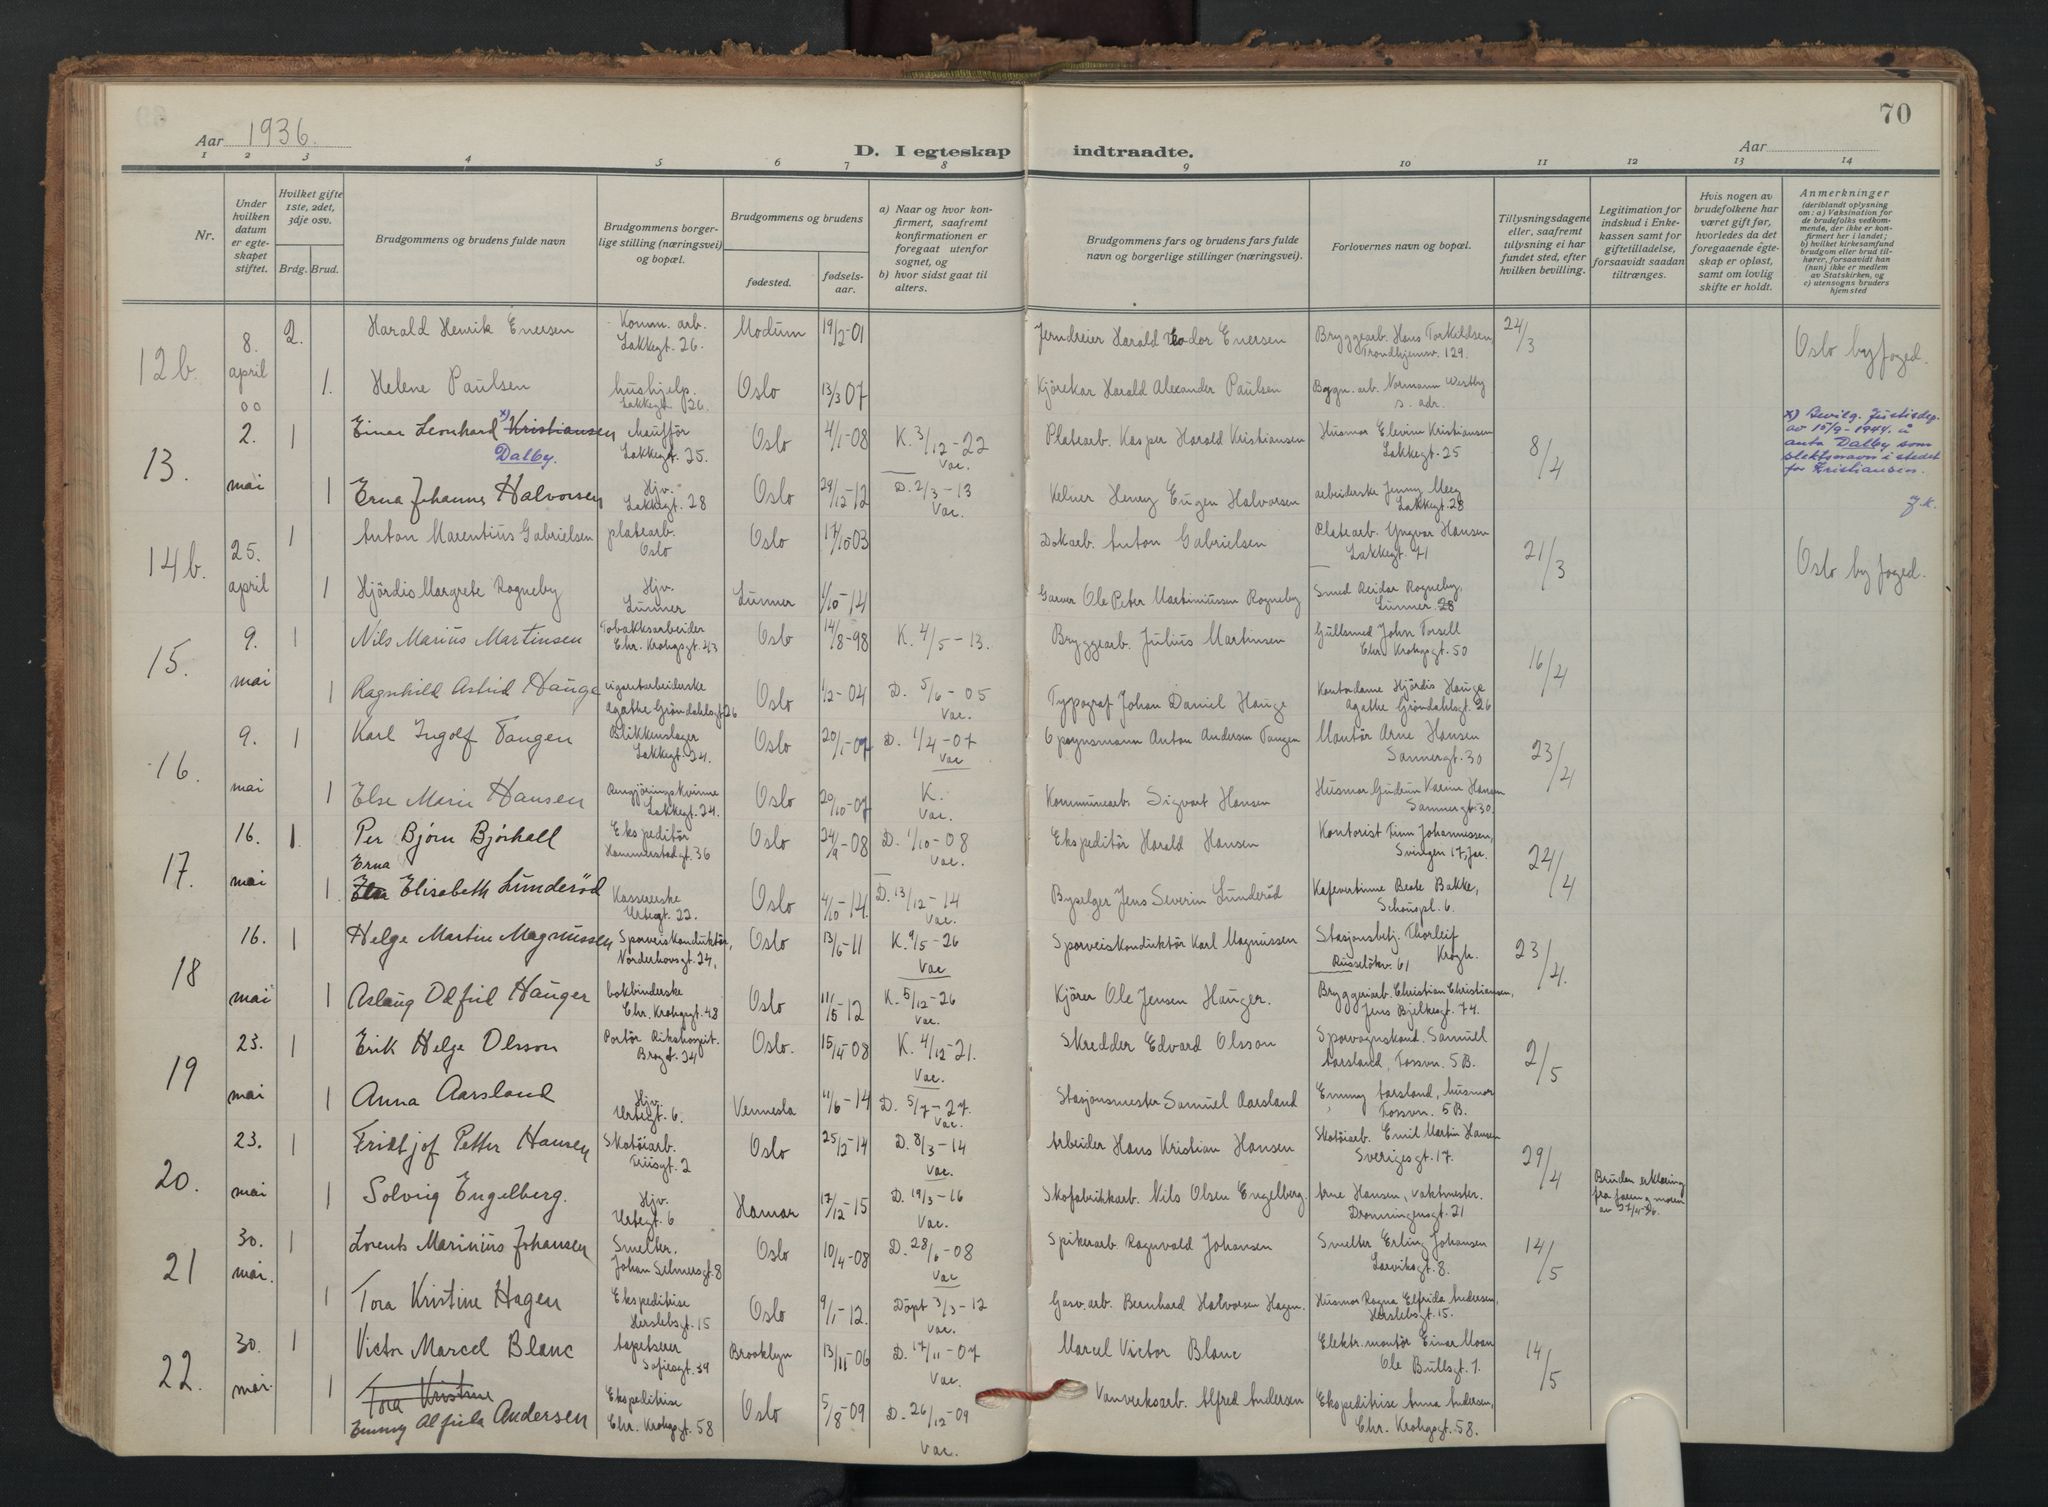 Aar 1936.
D. I egteskap indtraadte.
Aar
70
1 2 3 4 5 6 7 8 9 10 11 12 13 14
Nr.
Under hvilken datum er egteskapet stiftet.
Hvilket gifte 1ste, 2det, 3dje osv.
Brdg. Brud.
Brudgommens og brudens fulde navn
Brudgommens borgerlige stilling (næringsvei) og bopæl.
Brudgommens og brudens
fødested.
fødselsaar.
a) Naar og hvor konfirmert, saafremt konfirmationen er foregaat utenfor sognet, og
b) hvor sidst gaat til alters.
Brudgommens fars og brudens fars fulde navn og borgerlige stillinger (næringsvei).
Forlovernes navn og bopæl.
Tillysningsdagene eller, saafremt tillysning ei har fundet sted, efter hvilken bevilling.
Legitimation for indskud i Enkekassen samt for giftetilladelse, forsaavidt saadan tiltrænges.
Hvis nogen av brudefolkene har været gift før, hvorledes da det foregaaende egteskap er opløst, samt om lovlig skifte er holdt.
Anmerkninger
(deriblandt oplysning om: a) Vaksination for de brudefolks vedkommende, der ikke er konfirmert her i landet; b) hvilket kirkesamfund brudgom eller brud tilhører, forsaavidt han (hun) ikke er medlem av Statskirken, og c) utensogns bruders hjemsted
12b. 8. april 2. Harald Henrik Enersen Komm. arb. Lakkegt. 26. Modum 19/2-01 Jerndreier Harald Teodor Enersen Bryggearb. Hans Torkildsen Trondhjemsv. 129. 24/3 Oslo byfoged.
1. Helene Paulsen hushjelp. Lakkegt. 26. Oslo 13/3 07 Kjörekar Harald Alexander Paulsen Bygn. arb. Normann Westby s. adr.
13. 2. mai 1 Einar Leonhard x) Kristiansen Dalby. Lakkegt. 25. Oslo 4/1-08 K. 3/12-22 Vac. Platearb. Kasper Harald Kristiansen Husmor Elevine Kristiansen Lakkegt. 25 8/4 x) Bevilg. Justisdep. av 15/9-1944 å anta Dalby som slektsnavn i stedet for Kristiansen.
1 Erna Johanne Halvorsen Hjv. Lakkegt. 28 Oslo 29/12-12 D. 2/3-13 Vac. Kelner Henry Eugen Halvorsen arbeiderske Jenny Meeg Lakkegt. 28
14b. 25. april 1 Anton Marentius Gabrielsen platearb. Oslo Oslo 17/10-03 Dokarb. Anton Gabrielsen Platearb. Yngvar Hansen Lakkegt. 41 21/3 Oslo byfoged.
1 Hjördis Margrete Rogneby Hjv. Lunner Lunner 1/10-14 Garver Ole Peter Martiniussen Rogneby Smed Reidar Rogneby Lunner. 28
15. 9. mai 1 Nils Marius Martinsen Tobakksarbeider Chr. Krohgsgt. 43 Oslo 14/8-98 K. 4/5-13. Bryggearb. Julius Martinsen Gullsmed John Torsell Chr. Krohgsgt. 50 16/4
1 Ragnhild Astrid Hauge cigaretarbeiderske Agathe Gröndahlsgt. 26 Oslo 1/2-04 D. 5/6-05 Vac. Typograf Johan Daniel Hauge Kontordame Hjördis Hauge Agathe Gröndahlsgt. 26
16. 9. mai 1 Karl Ingolf Tangen Blikkenslager Lakkegt. 24. Oslo 20/1-07 D. 1/4-07 Vac Anton Andersen Tangen Montör Arne Hansen Sannergt. 30 23/4
1 Else Marie Hansen Rengjöringskvinne Lakkegt. 24. Oslo 20/10-07 K. Vac. Kommunearb. Sigvart Hansen Husmor Gudrun Karine Hansen Sannergt. 30.
17. 16. mai 1. Per Bjørn Bjørhall Ekspeditör Hammerstadgt. 36 Oslo 24/9-08 D. 1/10-08 Vac. Ekspeditör Harald Hansen Kontorist Finn Johannessen, Svingen 17, Jar. 24/4
1. Erna Elisabeth Lunderöd Kassererske Urtegt. 22. Oslo 4/10-14. D. 13/12-14 Vac. Byselger Jens Severin Lunderöd Kafevertinne Beate Bakke, Schouspl. 6.
18 16. mai 1 Helge Martin Magnussen Sporveiskonduktör, Norderhovsgt. 24, Oslo 13/6-11 K. 9/5-26 Vac Sporveiskonduktör Karl Magnussen Stasjonsbetj. Thorleif Krogh. Russeløkv. 61 23/4.
1 Aslaug Oldfrid Hauger bokbinderske Chr. Krohgsgt. 48 Oslo 11/5-12 K. 5/12-26 Vac. Kjörer Ole Jensen Hauger. Bryggeriarb. Christian Christiansen, Jens Bjelkesgt. 74.
19 23. mai 1 Erik Helge Olsson Portör Rikshospit. Brogt. 24 Oslo. 15/4-08 K. 4/12-21. Vac. Skredder Edvard Olsson Sporvognskond. Samuel Aarsland, Fossvn. 5B. 2/5
1 Anna Aarsland Hjv. Urtegt. 6. Vennesla 11/6-14 D. 5/7-27. Vac. Stasjonsmester Samuel Aarsland Emmy Aarsland, husmor Fossvn. 5B.
20. 23. mai 1 Fridtjof Petter Hansen Skotöiarb. Friisgt. 2 Oslo 25/2-14 D. 8/3-14 Vac. Arbeider Hans Kristian Hansen Skotöiarb. Emil Martin Hansen Sverigesgt. 17. 29/4
1 Solveig Engelberg. Hjv. Urtegt. 6 Hamar 17/12-15 D. 19/3-16 Vac. Skofabrikkarb. Nils Olsen Engelberg. Arne Hansen, vaktmester. Dronningensgt. 21 Bruden erklæring fra faren og moren av 27/4-36.
21 30. mai. 1 Lorents Marinius Johansen Smelter. Johan Selmersgt. 8 Oslo 10/4-08 D. 28/6-08 Vac Spikerarb. Ragnvald Johansen Smelter Erling Johansen Larviksgt. 8. 14/5
1 Tora Kristine Hagen Ekspeditrise Herslebsgt. 15 Oslo 9/1-12. Döpt 3/3-12 Vac. Gasv. arb. Bernhard Halvorsen Hagen. Husmor Ragna Elfrida Andersen, Herslebsgt. 15.
22. 30. mai. 1 Victor Marcel Blanc tapetserer Sofiesgt. 39 Brooklyn 13/11-06 D. 17/11-07 Vac. Marcel Victor Blanc Elektr. montör Einar Moan Ole Bullsgt. 1. 14/5
1 Tora Kristine Emmy Alfrida Andersen Ekspeditrise Chr. Krohgsgt. 58 Oslo 5/8-09 D. 26/12-09 Vac. Vannverksarb. Alfred Andersen Ekspeditrise Anna Andersen, Chr. Krohgsgt. 58.